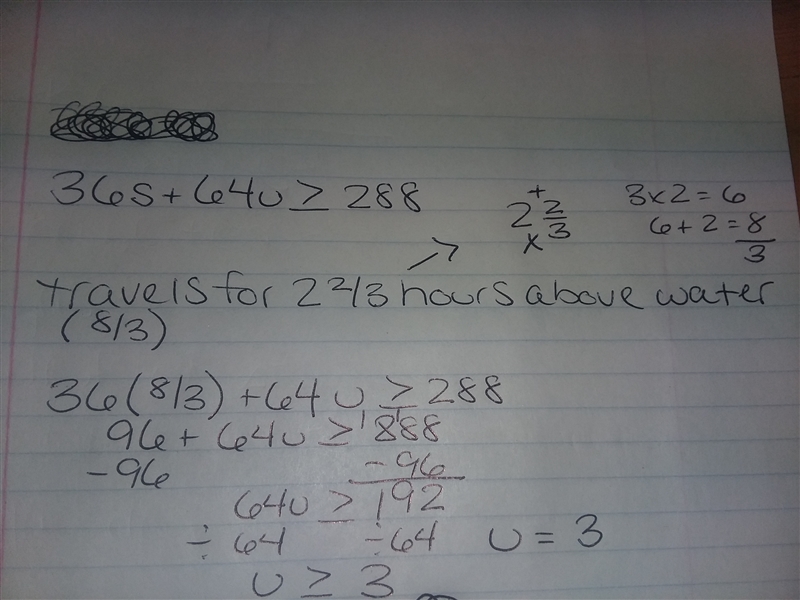 36s + 64u ≥ 288
2 2/3 + x
3x2 = 6
6 + 2 = 8/3
travels for 2 2/3 hours above water
(8/3)
36(8/3) + 64u ≥ 288
96 + 64u ≥ 288
-96 -96
64u ≥ 192
÷ 64 ÷64 u = 3
u ≥ 3